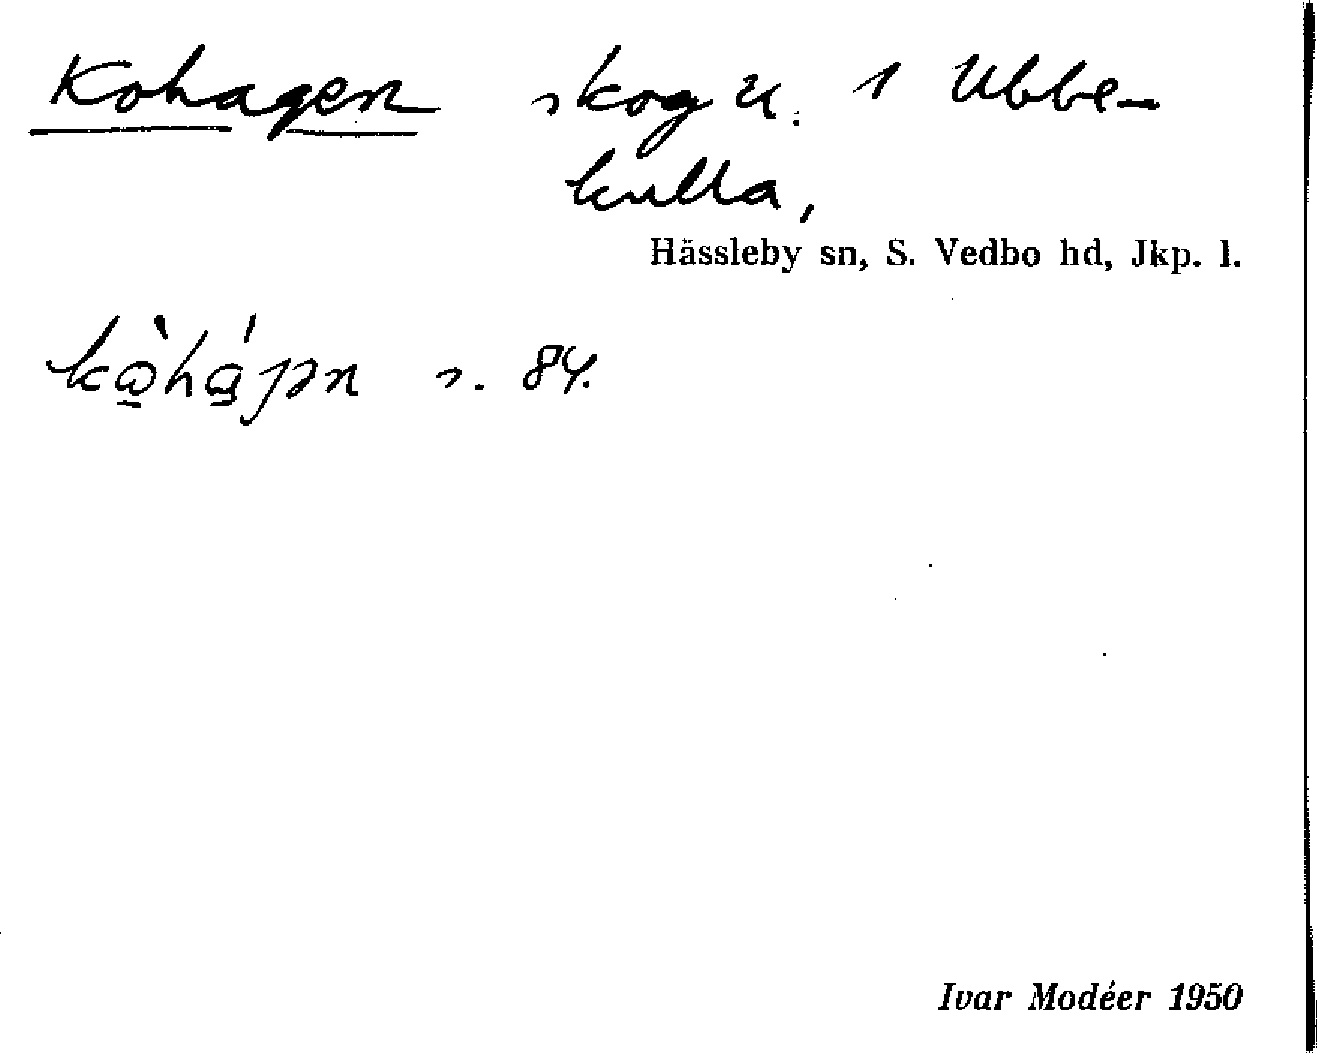 Kohagen skog u. 1 Ubbe-
kulla,
Hässleby sn, S. Vedbo hd, Jkp. l.
s. 84.
Ivar Modéer 1950